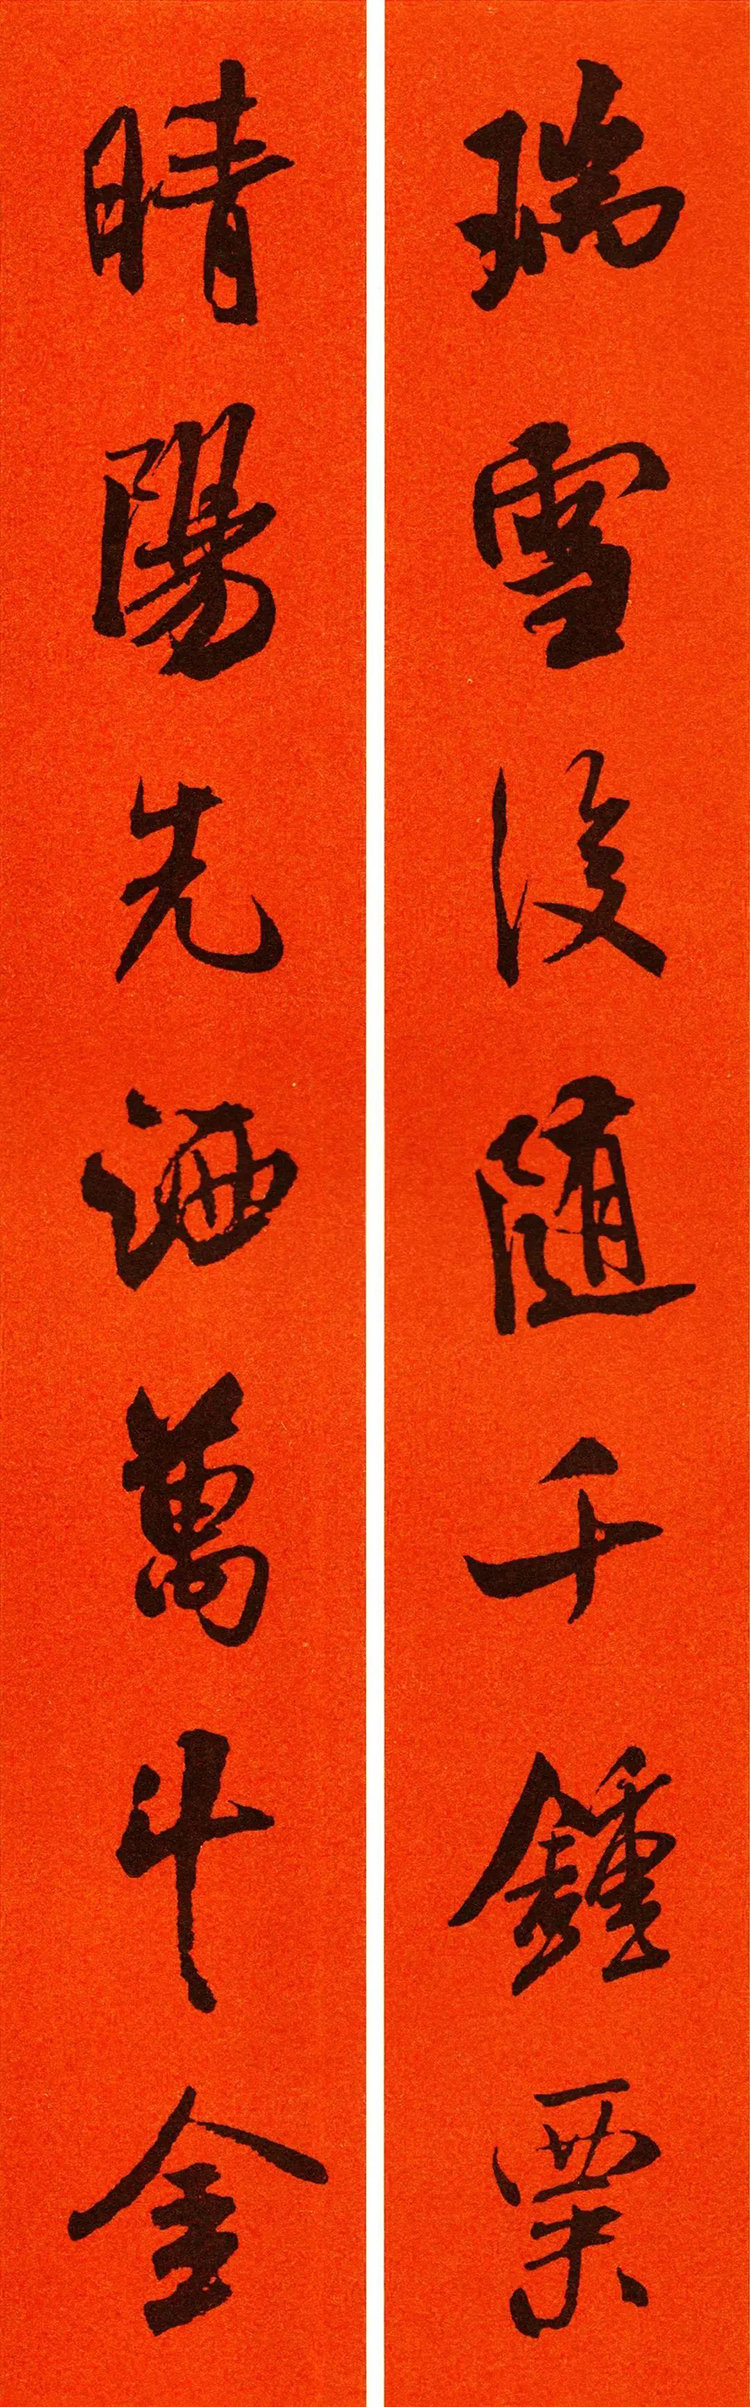 瑞雪後随千鍾粟
晴陽先洒萬斗金